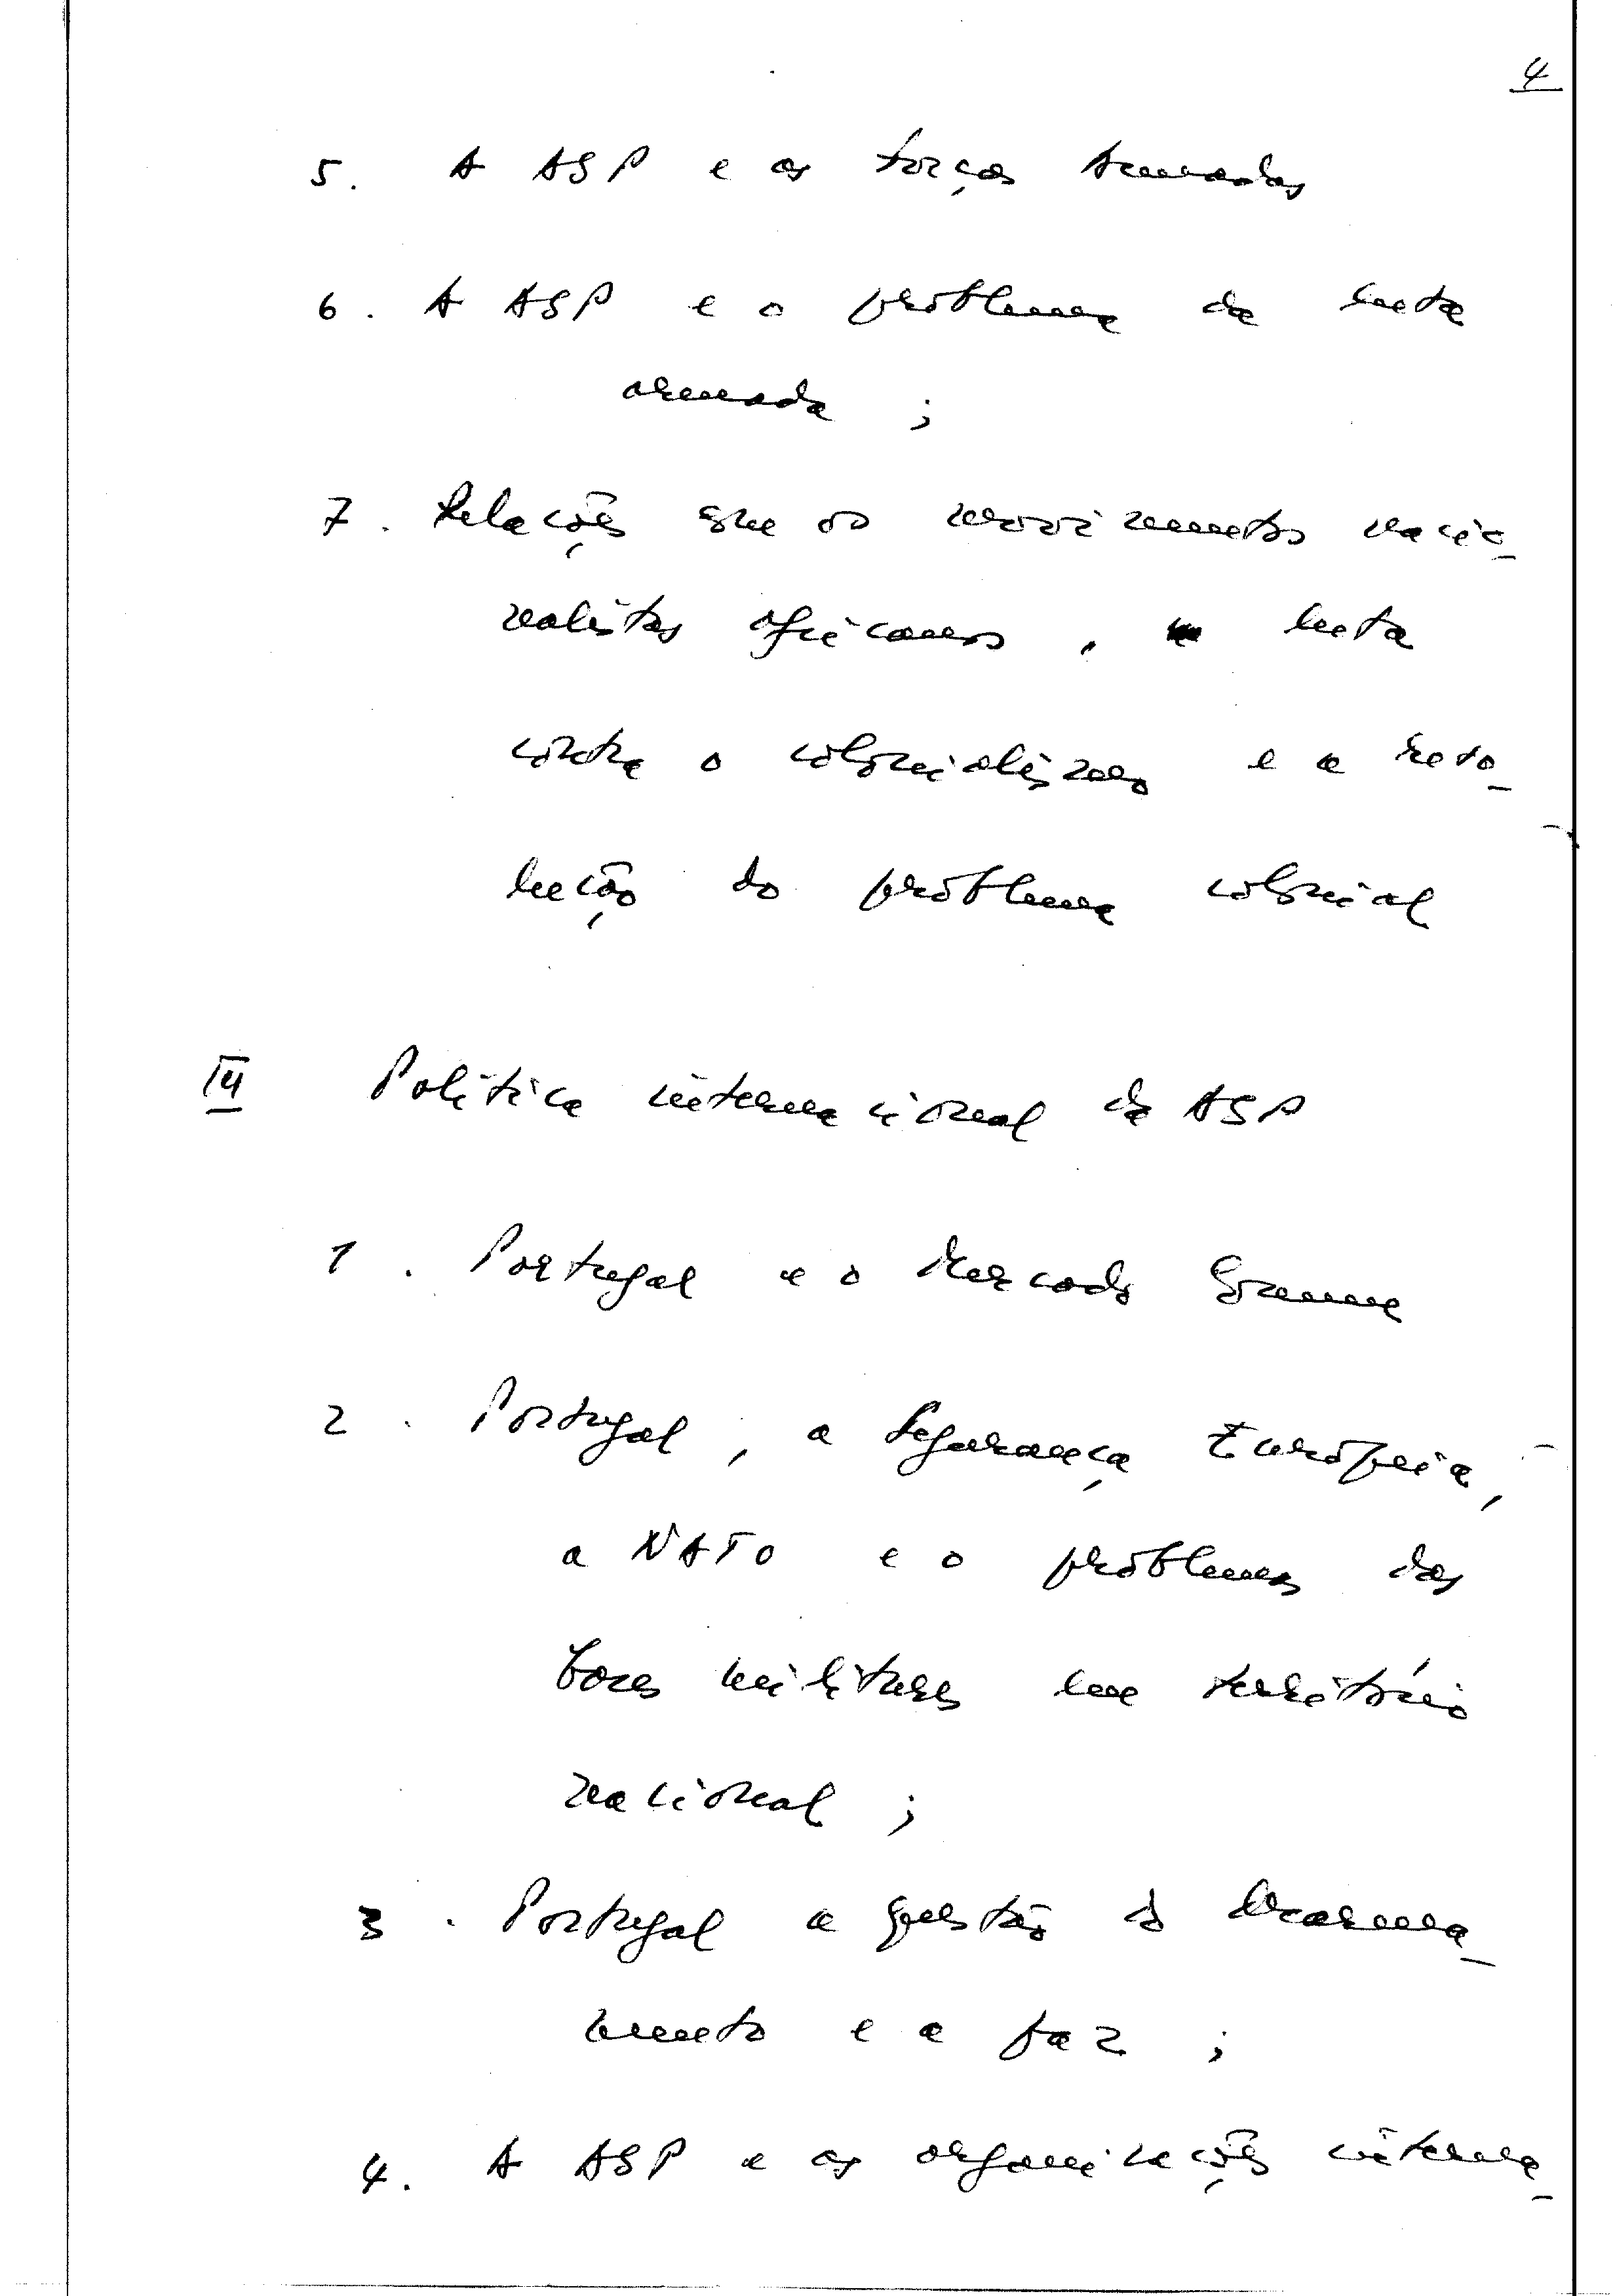 4
5. A ASP e as Forças Armadas
6. A ASP e o problema da luta
armada ;
7. Relações com os movimentos nacio-
nalistas africanos, luta
contra o colonialismo e a reso-
lução do problema colonial
IV Política internacional da ASP
1. Portugal e o Mercado Comum
2. Portugal, a Segurança Européia,
a NATO e o problema das
bases militares em território
nacional ;
3. Portugal a questão do desarma-
mento e a paz ;
4. A ASP e as organizações interna-